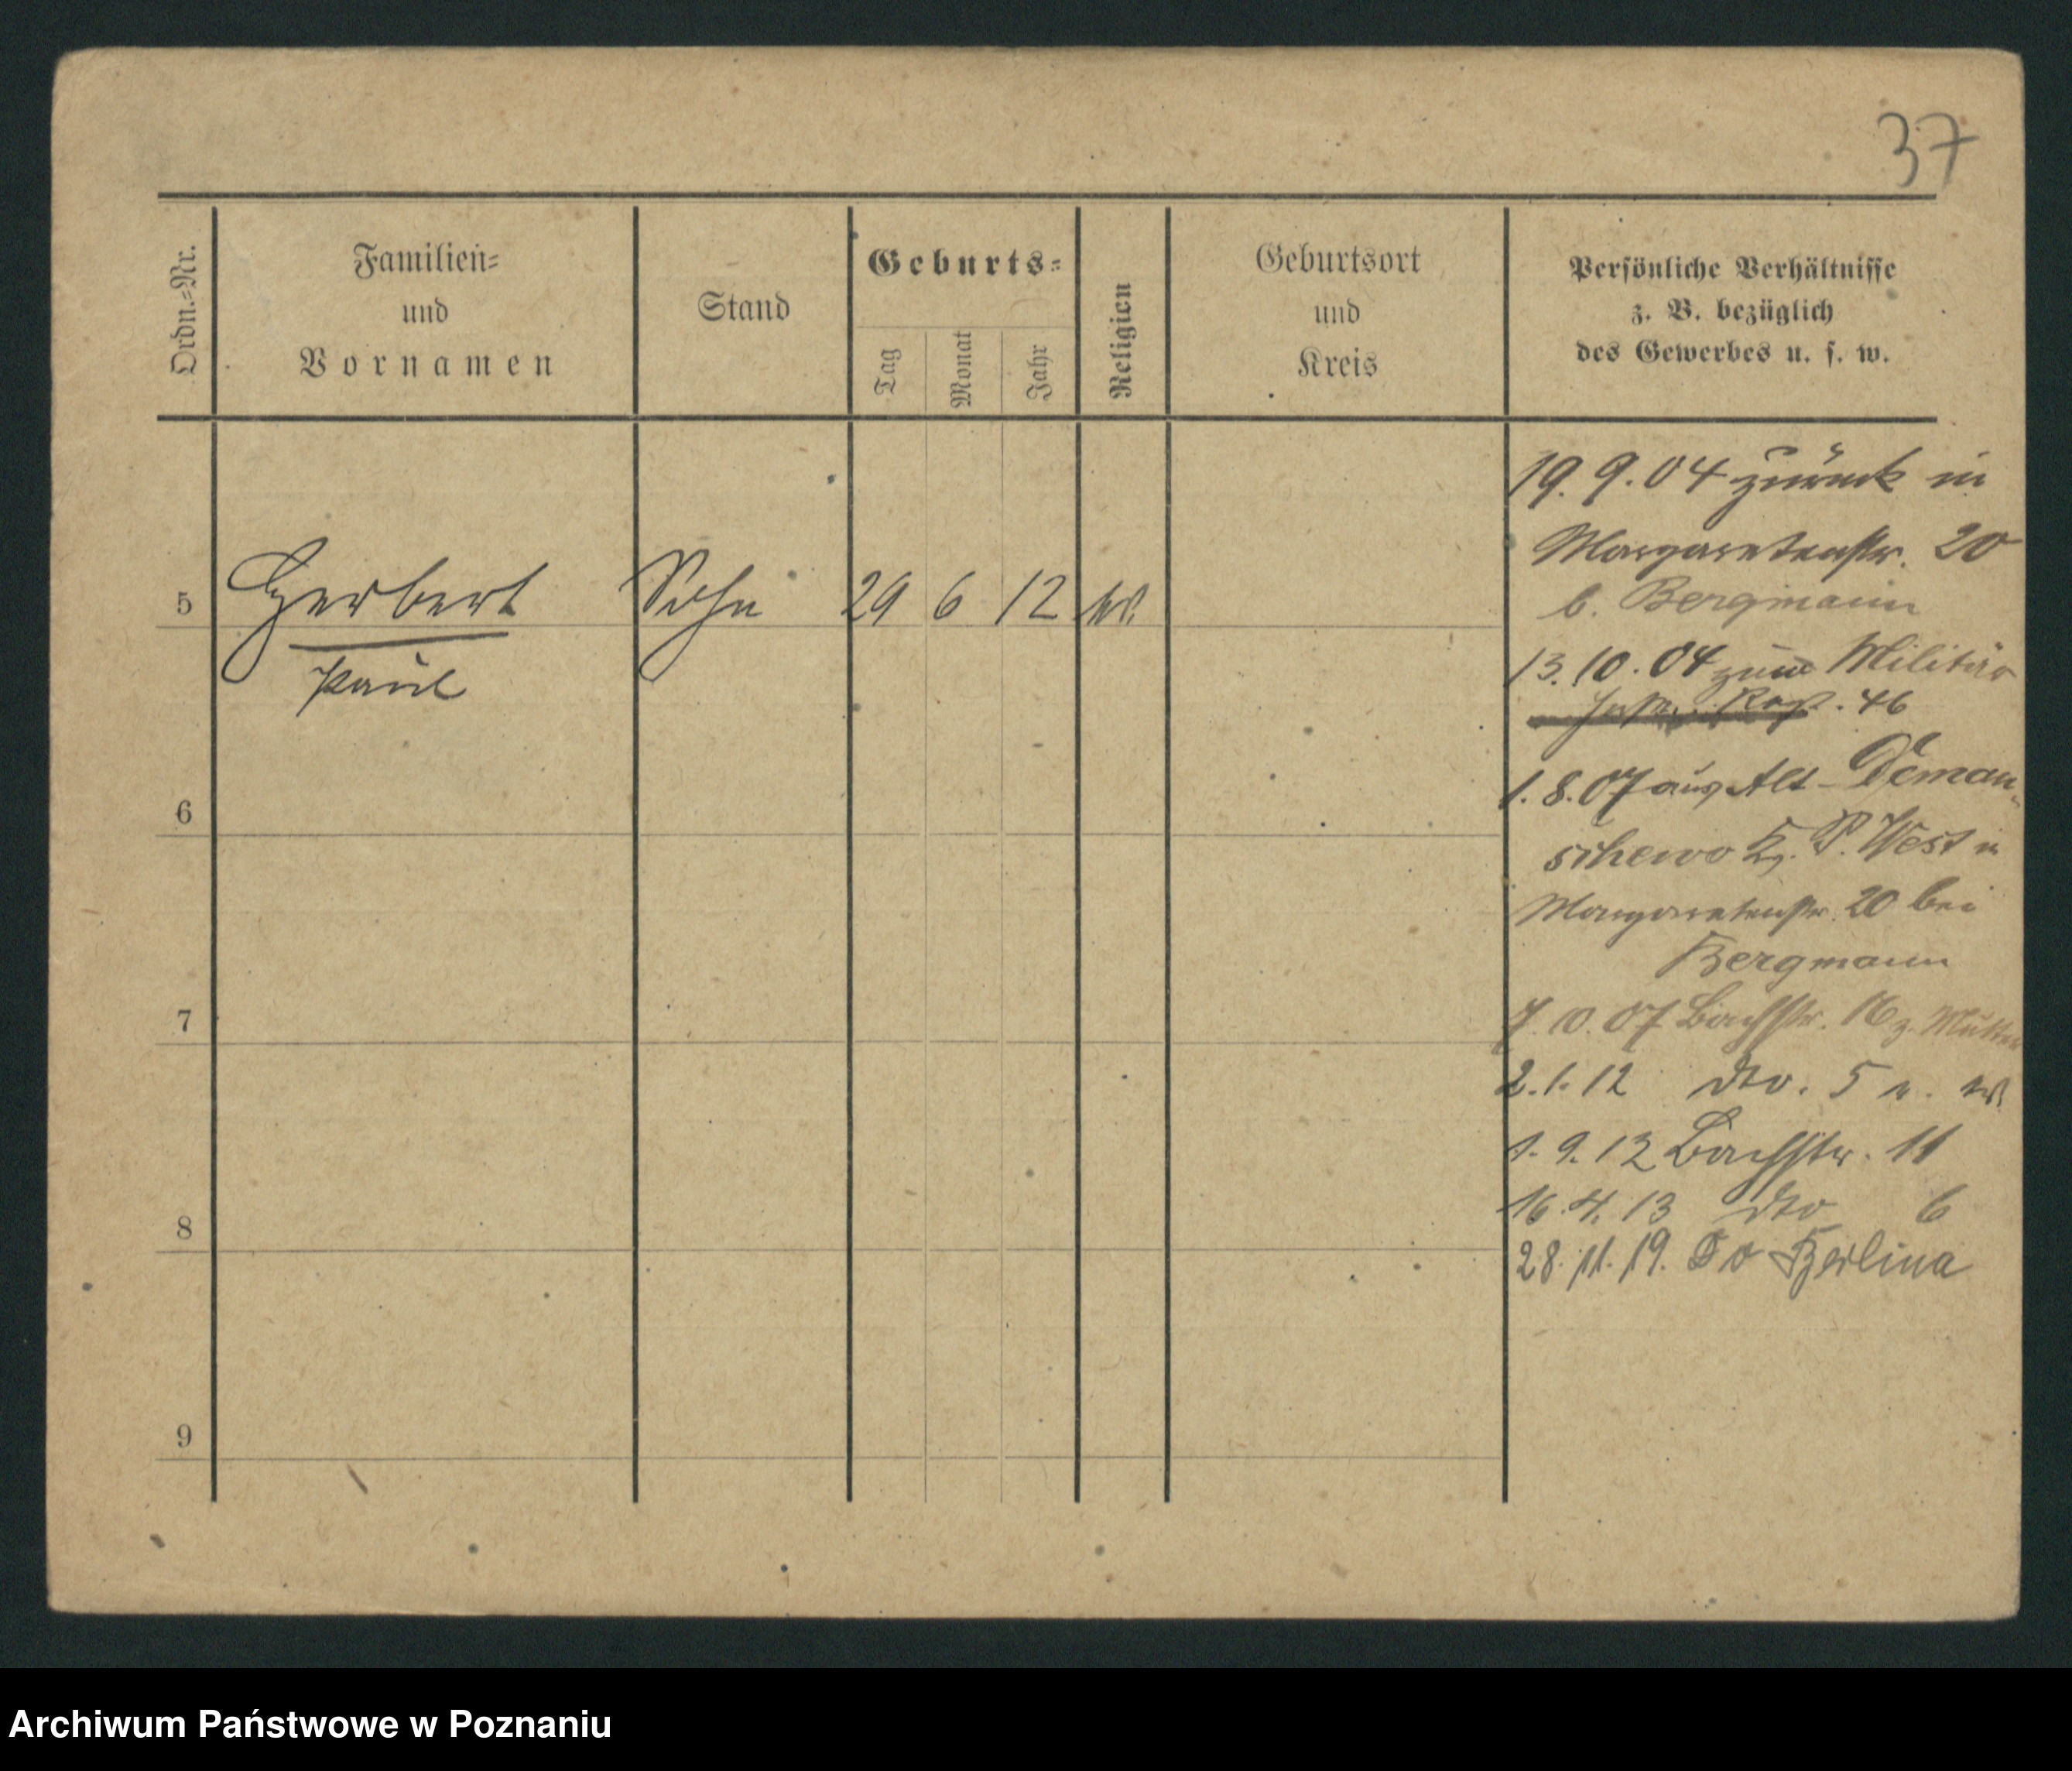 37
Ordn.=Nr.
Familien=
und
Vornamen
Stand
Geburts=
Tag
Monat
Jahr
Religion
Geburtsort
und
Kreis
Persönliche Verhältnisse
z. B. bezüglich
des Gewerbes u. s. w.
5 Herbert Sohn 29 6 12
Paul
6
7
8
9
19. 9. 04 zurück in
Margaretenstr. 20
b. Bergmann
13. 10. 04 zum Militär
46
1. 8. 07 aus Alt-Deman-
schewo P. West in
Margaretenstr. 20 bei
Bergmann
7. 10. 07 Bachstr. 16 z. Mutter
2. 1. 12 dto. 5
1. 9. 12 Bachstr. 11
16. 4. 13 dto 6
28. 11. 19. Do Berlina
Archiwum Państwowe w Poznaniu